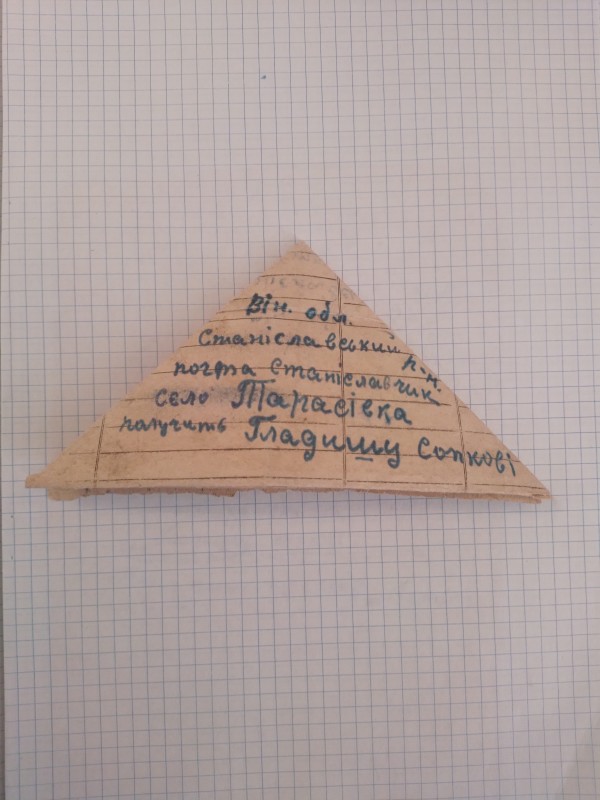 Він. обл.
Станіславський р.н.
почта Станіславчик
село Тарасівка
получить Гладишу Сопкові